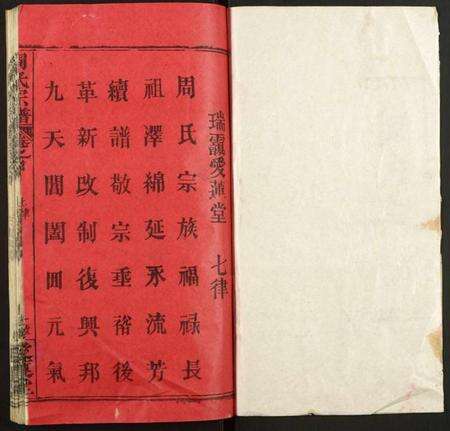 瑞靄愛蓮堂 七律
周氏宗族福禄長
祖澤綿延永流芳
續譜敬宗垂裕後
革新改制復興邦
九天閶闔回元氣
周氏宗譜